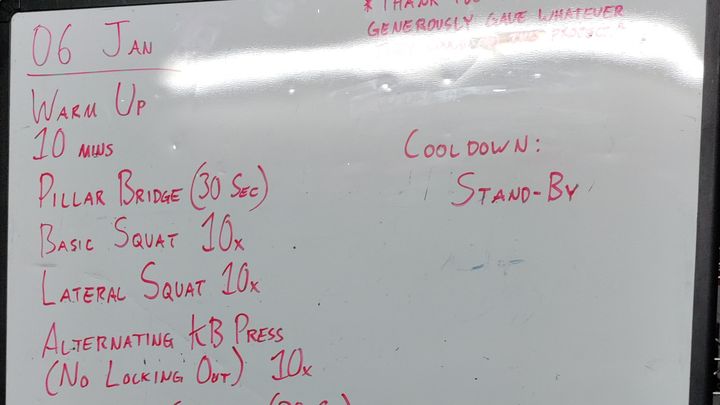 06 JAN
* THANK YOU
GENEROUSLY GAVE WHATEVER
WARM UP
10 MINS
PILLAR BRIDGE (30 SEC)
BASIC SQUAT 10x
LATERAL SQUAT 10x
ALTERNATING KB PRESS
(NO LOCKING OUT) 10x
COOLDOWN:
STAND-BY